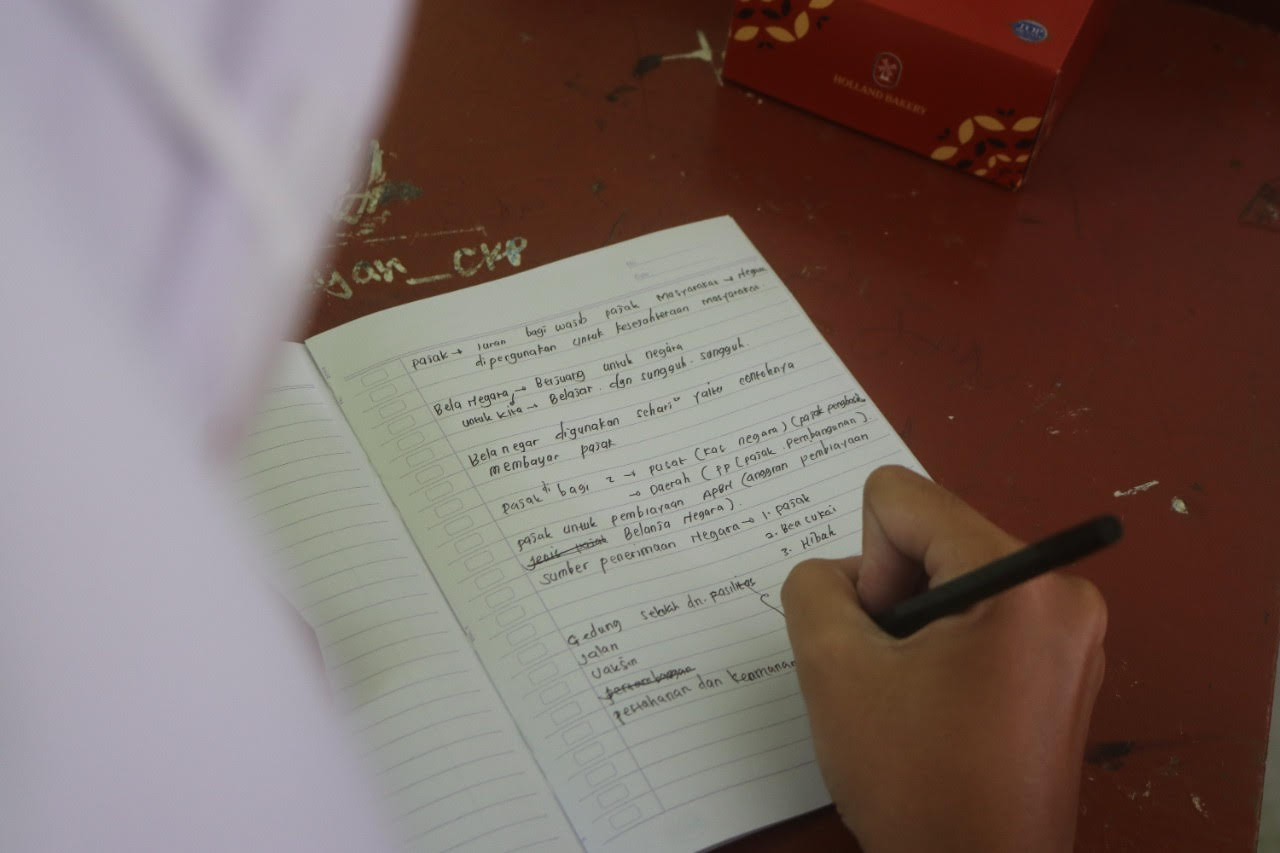 HOLLAND BAKERY
yan_CKP
Pajak → Iuran bagi wajib pajak masyarakat → Negara
dipergunakan untuk kesejahteraan masyarakat
Bela Negara → Berjuang untuk negara
untuk kita → Belajar dgn sungguh-sungguh.
Bela negar digunakan sehari" yaitu contohnya
membayar pajak
pajak di bagi 2 → pusat (kas negara) (pajak
→ Daerah ( PP (pajak pembangunan).
pajak untuk pembiayaan APBN (anggran pembiayaan
Belanja Negara).
sumber penerimaan Negara → 1. pajak
2. Bea cukai
3. Hibah
Gedung sekolah dn. pasilitas
jalan
vaksin
pertahanan dan keamanan